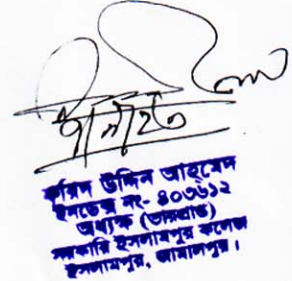 ফরিদ উদ্দিন আহমেদ
ইনডেক্স নং- ৪০৩৬১২
অধ্যক্ষ (ভারপ্রাপ্ত)
সরকারি ইসলামপুর কলেজ
ইসলামপুর, জামালপুর।